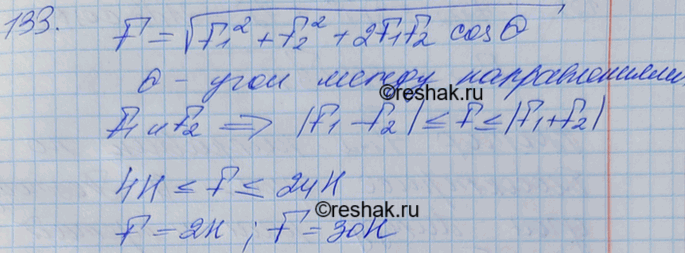 133. F = √(F₁² + F₂² + 2F₁F₂ cos θ)
θ - угол между направлениями
©reshak.ru
F₁ и F₂ ⇒ |F₁ - F₂| ≤ F ≤ |F₁ + F₂|
4Н ≤ F ≤ 24Н
©reshak.ru
F = 2Н ; F = 30Н